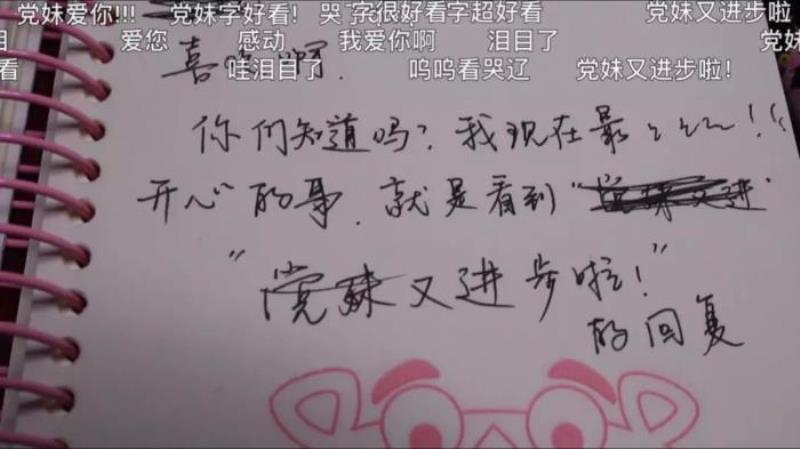 党妹爱你!!! 党妹字好看! 哭了 字很好看字超好看 党妹又进步啦
爱您 感动 我爱你啊 泪目了 党妹
看 哇泪目了 呜呜看哭辽 党妹又进步啦!
喜 啊.
你们知道吗? 我现在最~~~!!
开心"的事, 就是看到"党妹又进"
"党妹又进步啦!"
的回复